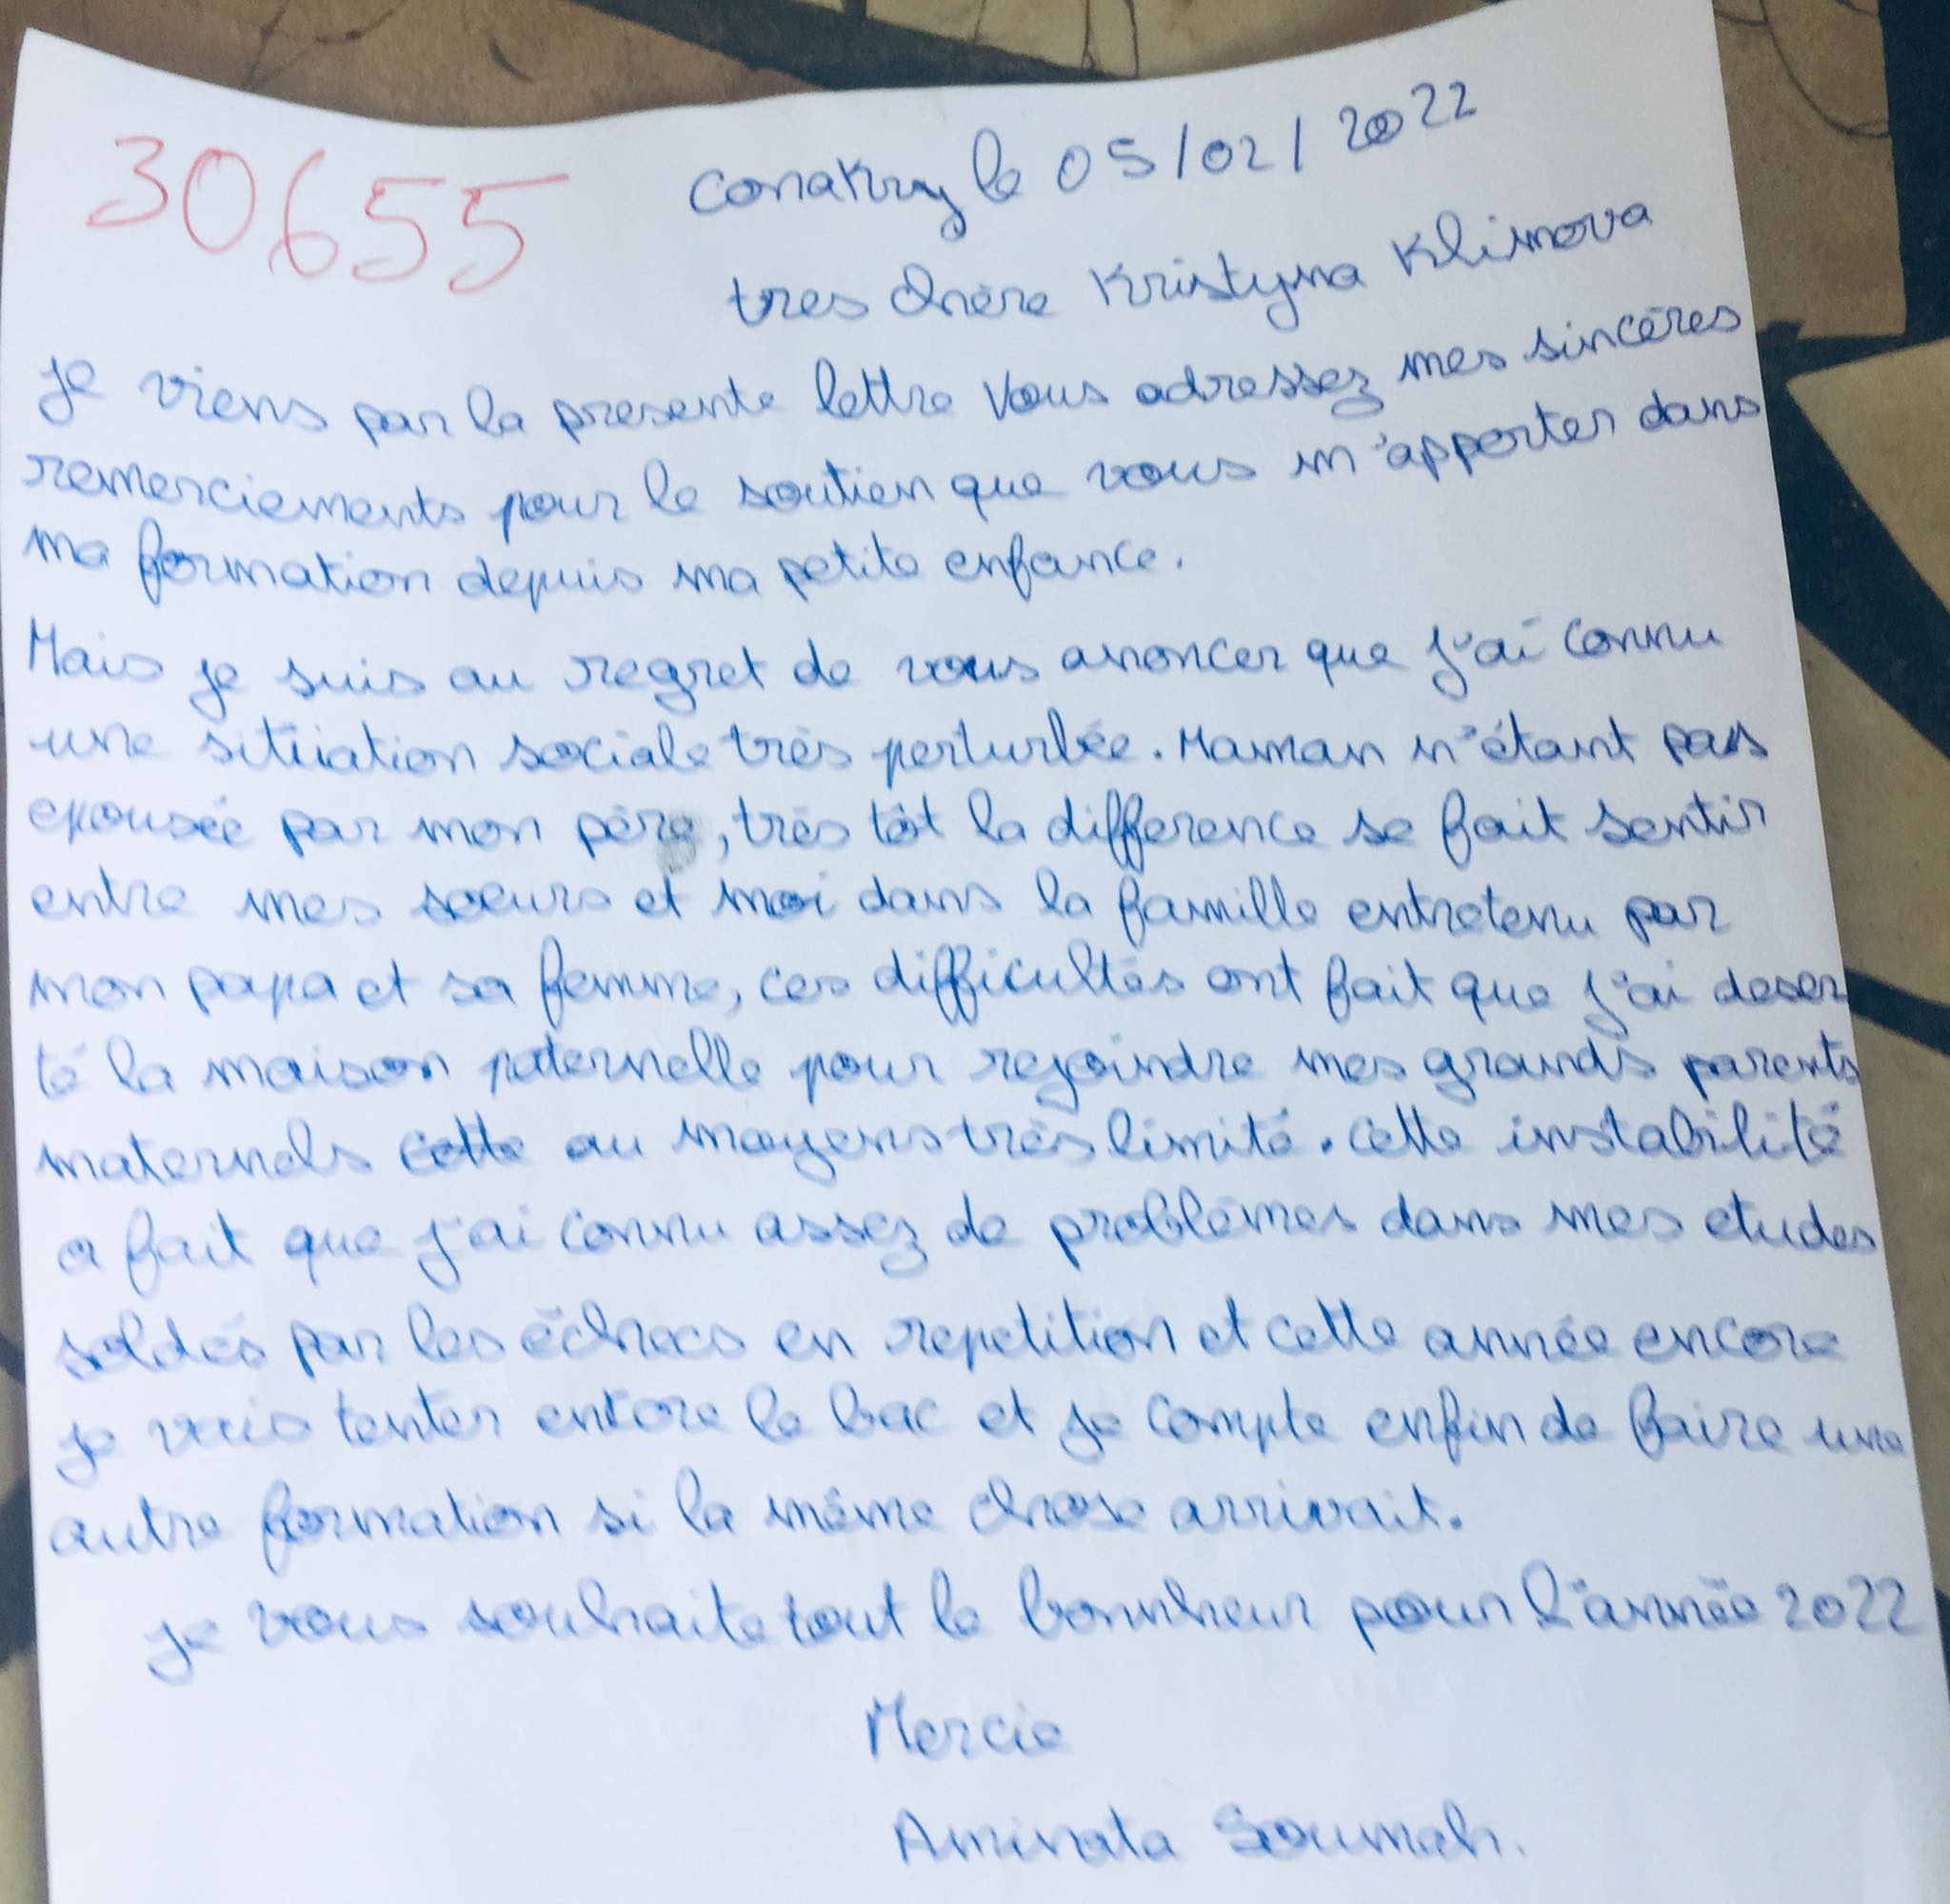 30655
conakry le 05/02/2022
tres chère Kristyna Klimova
je viens par la presente lettre vous adressez mes sincères
remerciements pour le soutien que vous m'apporter dans
ma formation depuis ma petite enfance.
Mais je suis au regret de vous anoncer que j'ai connu
une situation sociale très perturbée. Maman n'étant pas
epousée par mon père, très tôt la difference se fait sentir
entre mes soeurs et moi dans la famille entretenu par
mon papa et sa femme, ces difficultés ont fait que j'ai deser
té la maison paternelle pour rejoindre mes grands parents
maternels cette au moyens très limité. cette instabilité
a fait que j'ai connu assez de problèmes dans mes etudes
soldés par les échecs en repetition et cette année encore
je vais tenter encore le bac et je compte enfin de faire une
autre formation si la même chose arrivait.
je vous souhaite tout le bonnheur pour l'année 2022
Mercie
Aminata Soumah.